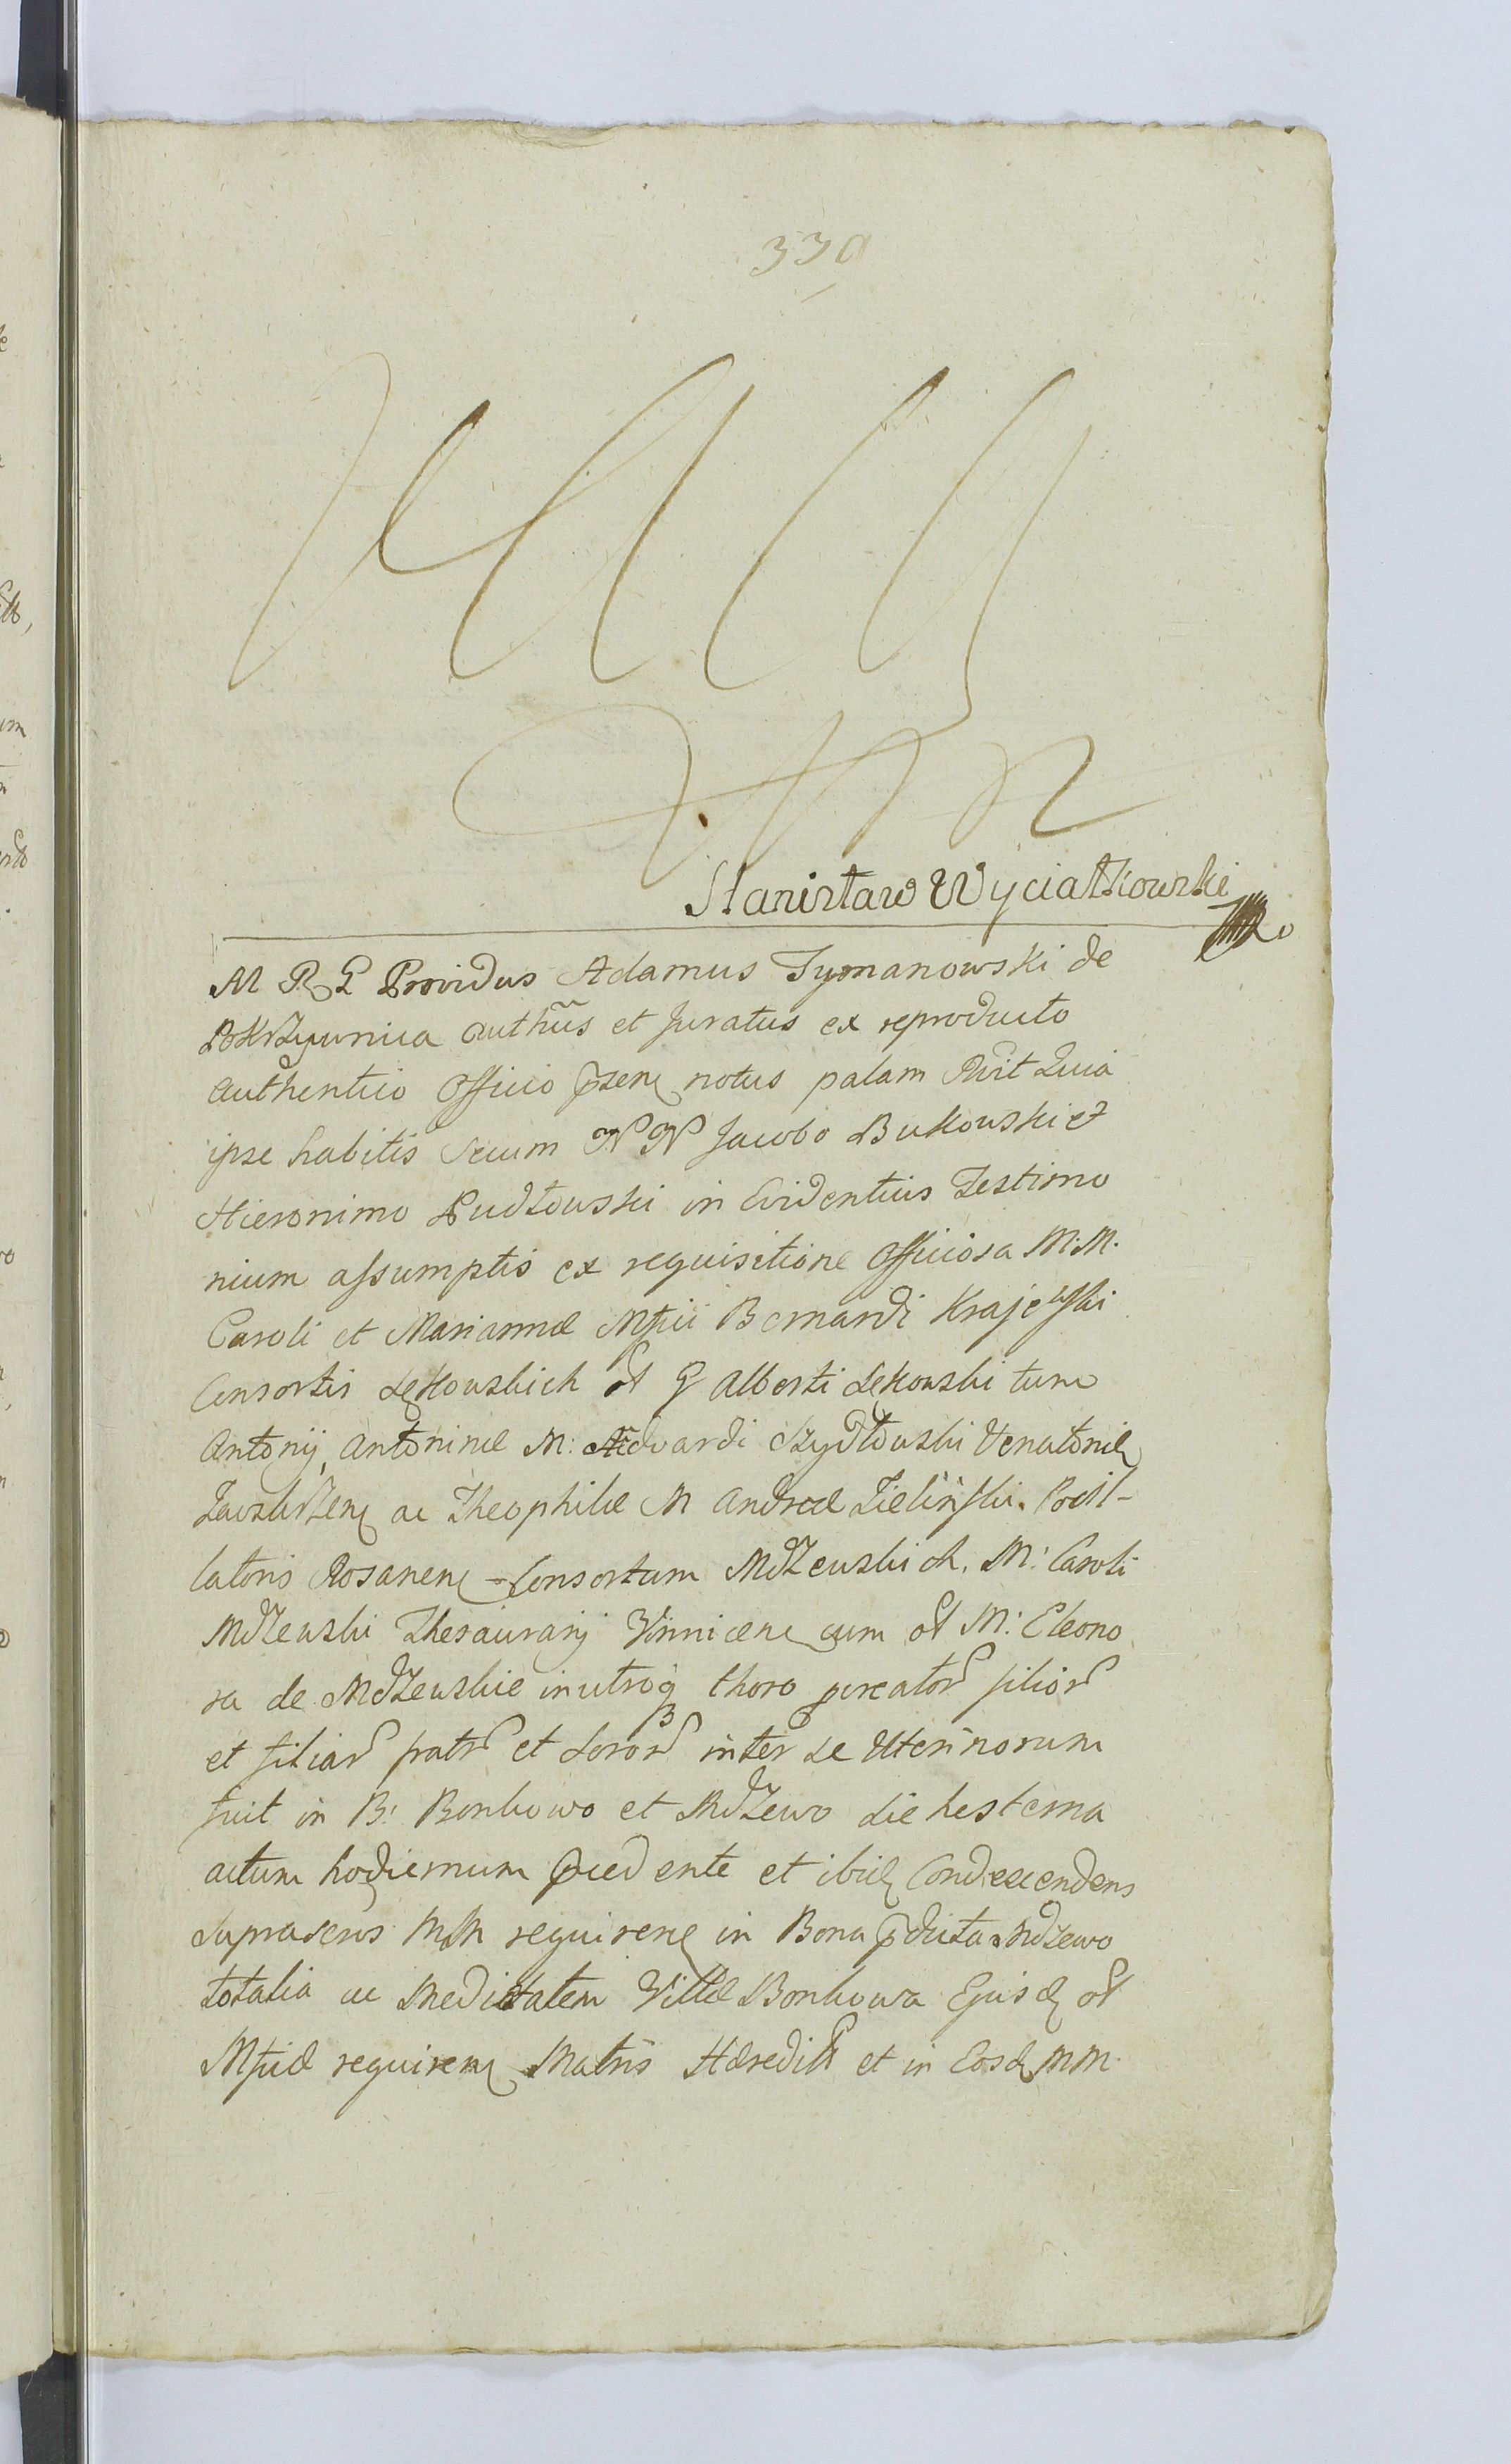 330
Stanisław Wyciałkowski
M R G Providus Adamus Tymanowski de
Pokrzywnica authūs et Juratus ex reproducto
authentico Officio pzenę notus palam Rvit Quia
ipse habitis Secum N N Jacobo Bukowski et
Hieronimo Pudłowski in Evidentius Testimo
nium assumptis ex requisitione Officiosa M: M.
Caroli et Mariannæ Mfici Bernardi Krajewski
Consortis Łękowskich et G Alberti Łękowski tum
Antonij, Antoninæ M: Edvardi Szydłowski Venatoris
Zawskrzenę ac Theophilæ M Andreæ Zieliński. Pocil-
latoris Rosanenę - Consortum Mdzewskich. M: Caroli
Mdzewski Thesaurarij Vinnicenę cum ol M: Eleono
ra de Mdzewskie in utroq thoro pcreator filior
et filiar fratr et Soror inter se Uterinorum
fuit in B: Bonkowo et Mdzewo die hesterna
actum hodiernum pcedente et ibidę Condescendens
Suprascrs MM requirenę in Bona pdicta Mdzewo
totalia ac Medietatem Villæ Bonkowa Ejusdę ol
Mficæ requirenę Matris Hæredit et in Eosdę MM.